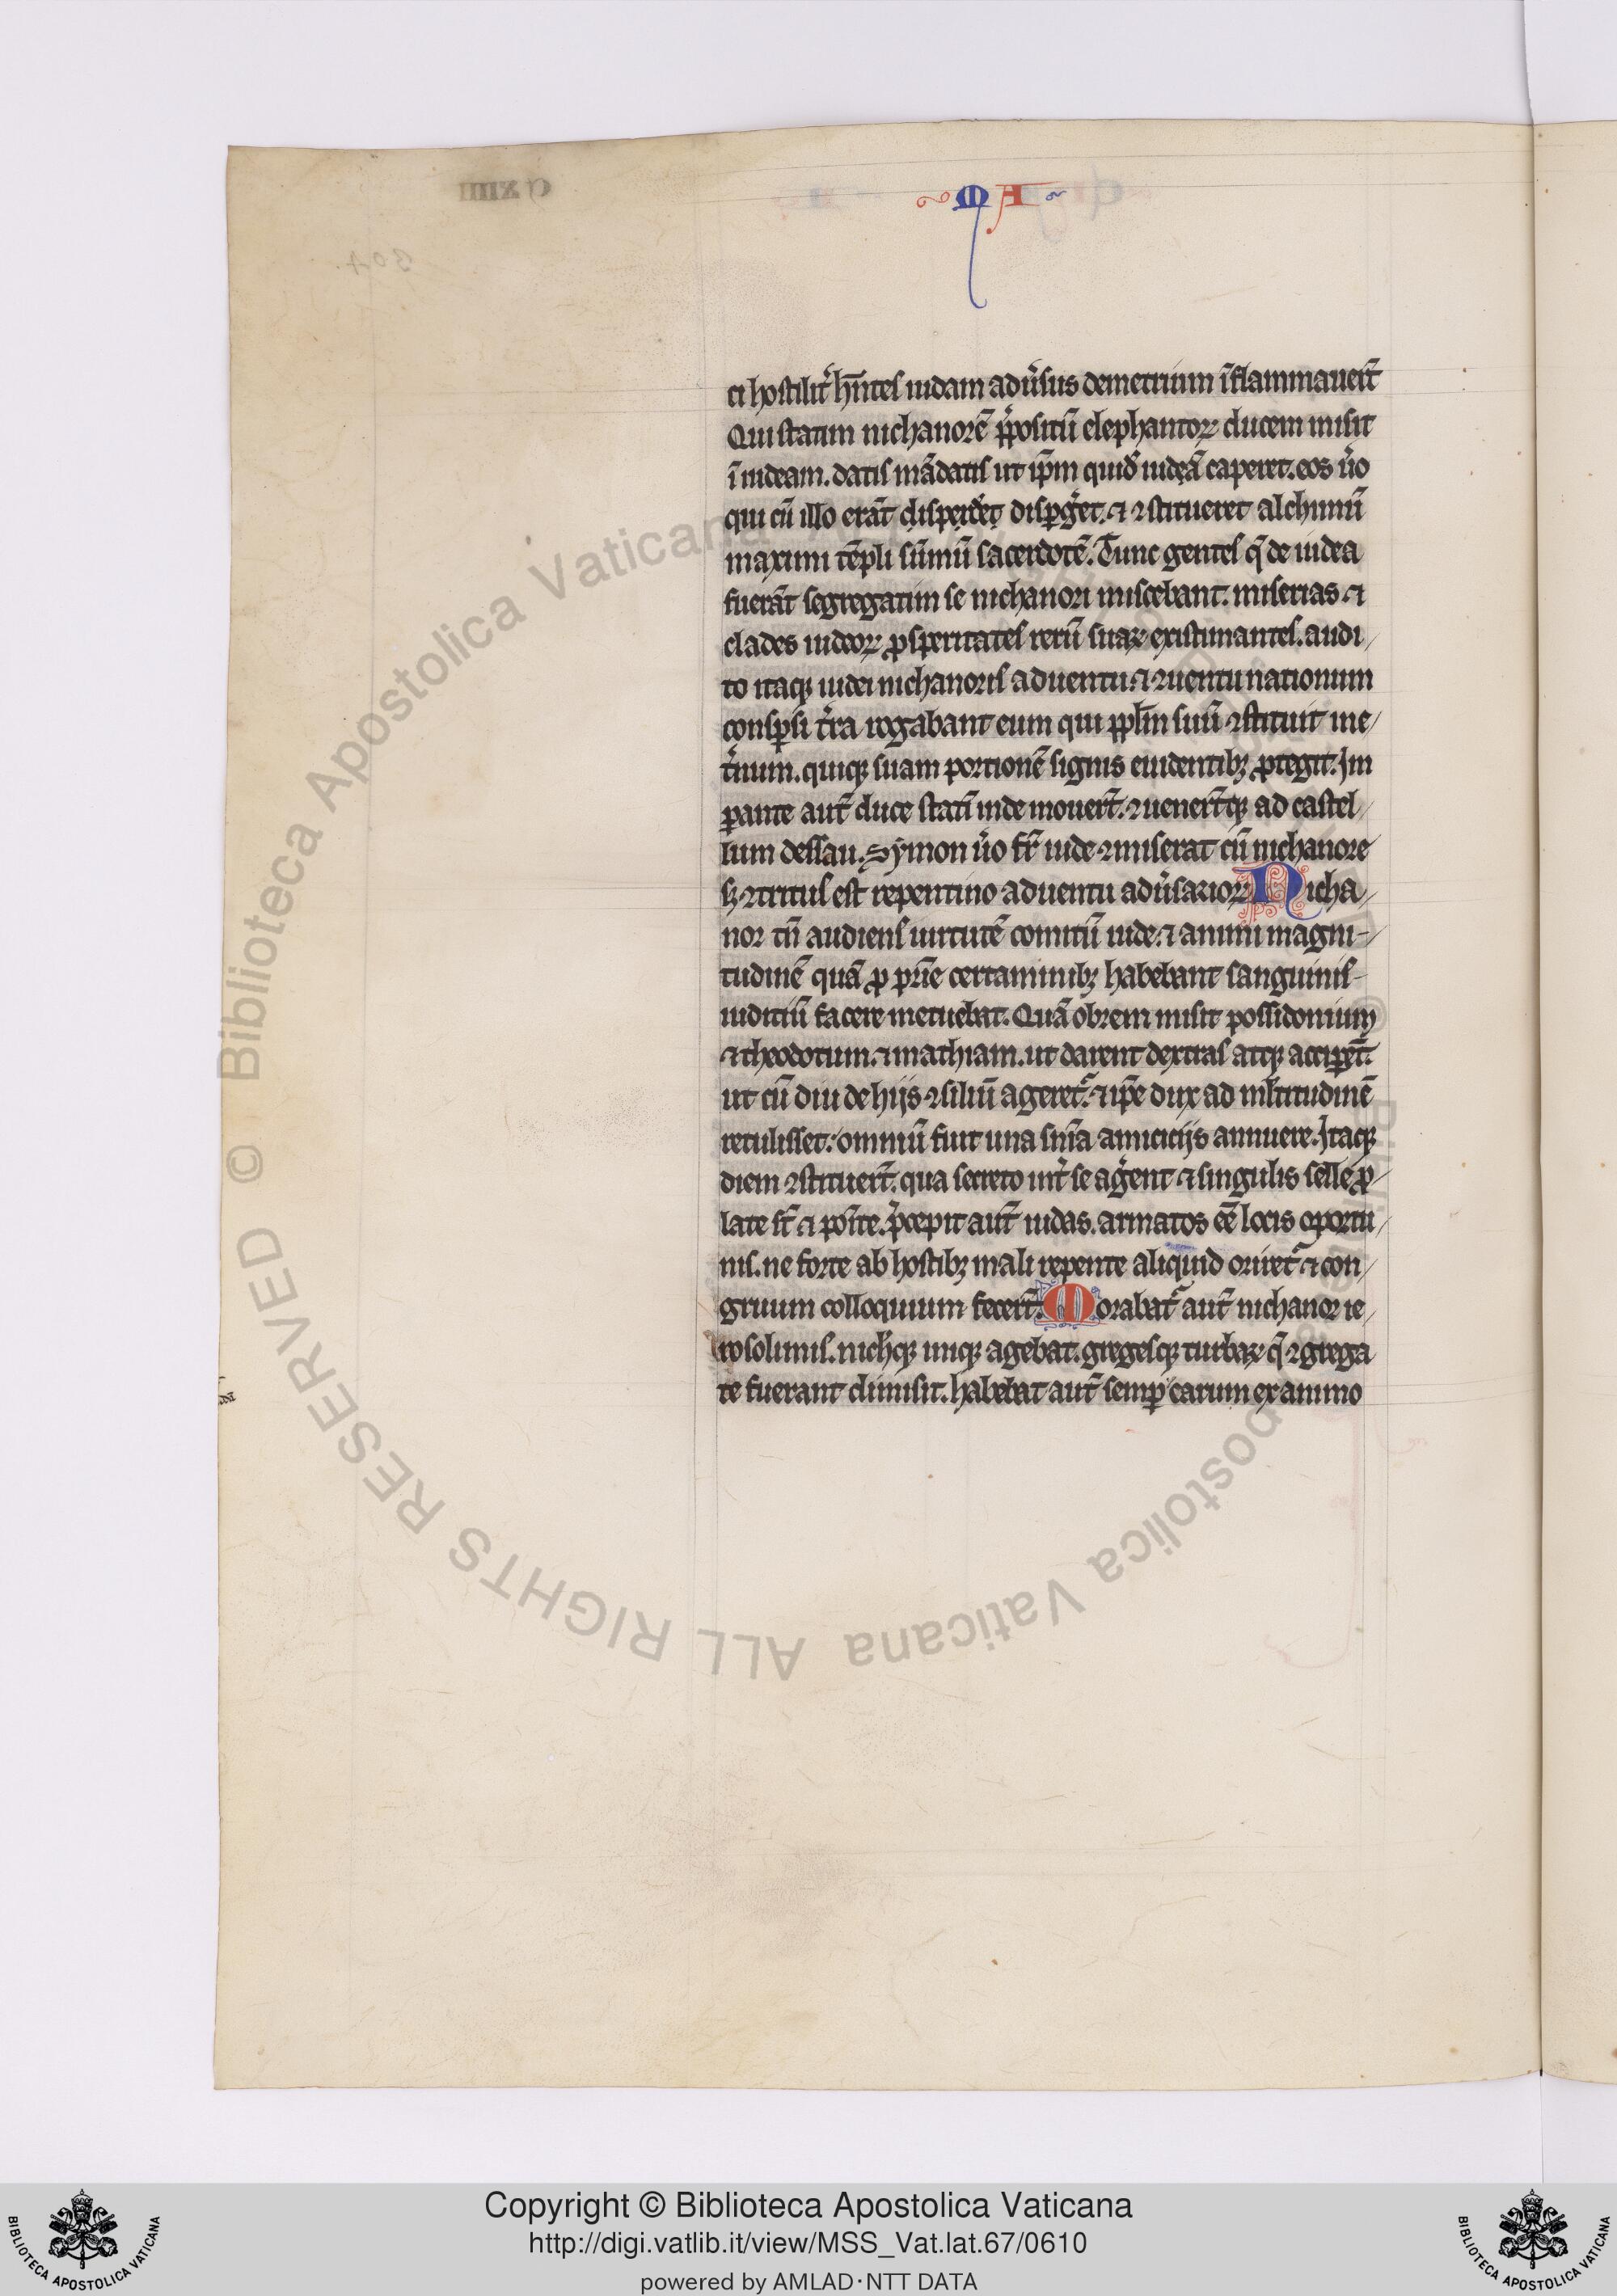 MA
ci hostilit̉ hñtes iudam adũsus demetrium ĩflammauer̃t
Qui statim nichanorẽ p̃positũ elephantoꝝ ducem misit
ĩ iudeam. datis mãdatis ut ip̃m quid̃ iudeã caperet. eos ũo
qui cũ illo erãt disperdet̉ disp̱g̃et. ⁊ ꝯstitueret alchimũ
maximi tẽpli sũmũ sacerdotẽ. Tunc gentes q̃ de iudea
fuerãt segregatim se nichanori miscebant. miserias ⁊
clades iudeoꝝ ꝓsperitates rerũ suaꝝ existimantes. audi/
to itaqꝫ iudei nichanoris aduentu. ⁊ ꝯuentu nationum
consꝑsi t̉ra rogabant eum qui ppl̃m suũ ꝯstituit me/
t̉num. quiqꝫ suam portionẽ signis euidentibꝫ ꝓtegit. Jm
ꝑante aut̃ duce statĩ inde mouer̃t. ꝯuener̃tqꝫ ad castel/
lum dessau. Symon ũo fr̃ iude ꝯmiserat cũ nichanore
sꝫ ꝯtritus est repentino aduentu adũsarioꝝ Nicha/
nor tñ audiens uirtutẽ comitũ iude. ⁊ animi magni-/
tudinẽ quã ꝓ pr̃ie certaminibꝫ habebant sanguinis-
iuditiũ facere metuebat. Quã obrem misit possidonium
⁊ theodotum. ⁊ mathiam. ut darent dextras atqꝫ acciꝑẽt.
ut cũ diu de hijs ꝯsiliũ ageret᷑. ⁊ ip̃e dux ad ml̃titudinẽ
retulisset: omniũ fuit una sñia amicicijs annuere. Jtaqꝫ
diem ꝯstituer̃t. qua secreto int̉ se ag̃ent ⁊ singulis selle ꝓ-
late st̃ ⁊ poĩte. p̃cepit aut̃ iudas. armatos eẽ locis oportu/
nis. ne forte ab hostibꝫ mali repente aliquid oriret᷑ ⁊ con/
gruum colloquium fecer̃t. Morabat᷑ aut̃ nichanor ie/
rosolimis. nichꝉqꝫ iniqꝫ agebat. gregesqꝫ turbaꝝ q̃ ꝯgrega
te fuerant dimisit. habebat aut̃ semꝑ carum ex animo
Copyright © Biblioteca Apostolica Vaticana
http://digi.vatlib.it/view/MSS_Vat.lat.67/0610
powered by AMLAD·NTT DATA
BIBLIOTECA APOSTOLICA VATICANA
BIBLIOTECA APOSTOLICA VATICANA